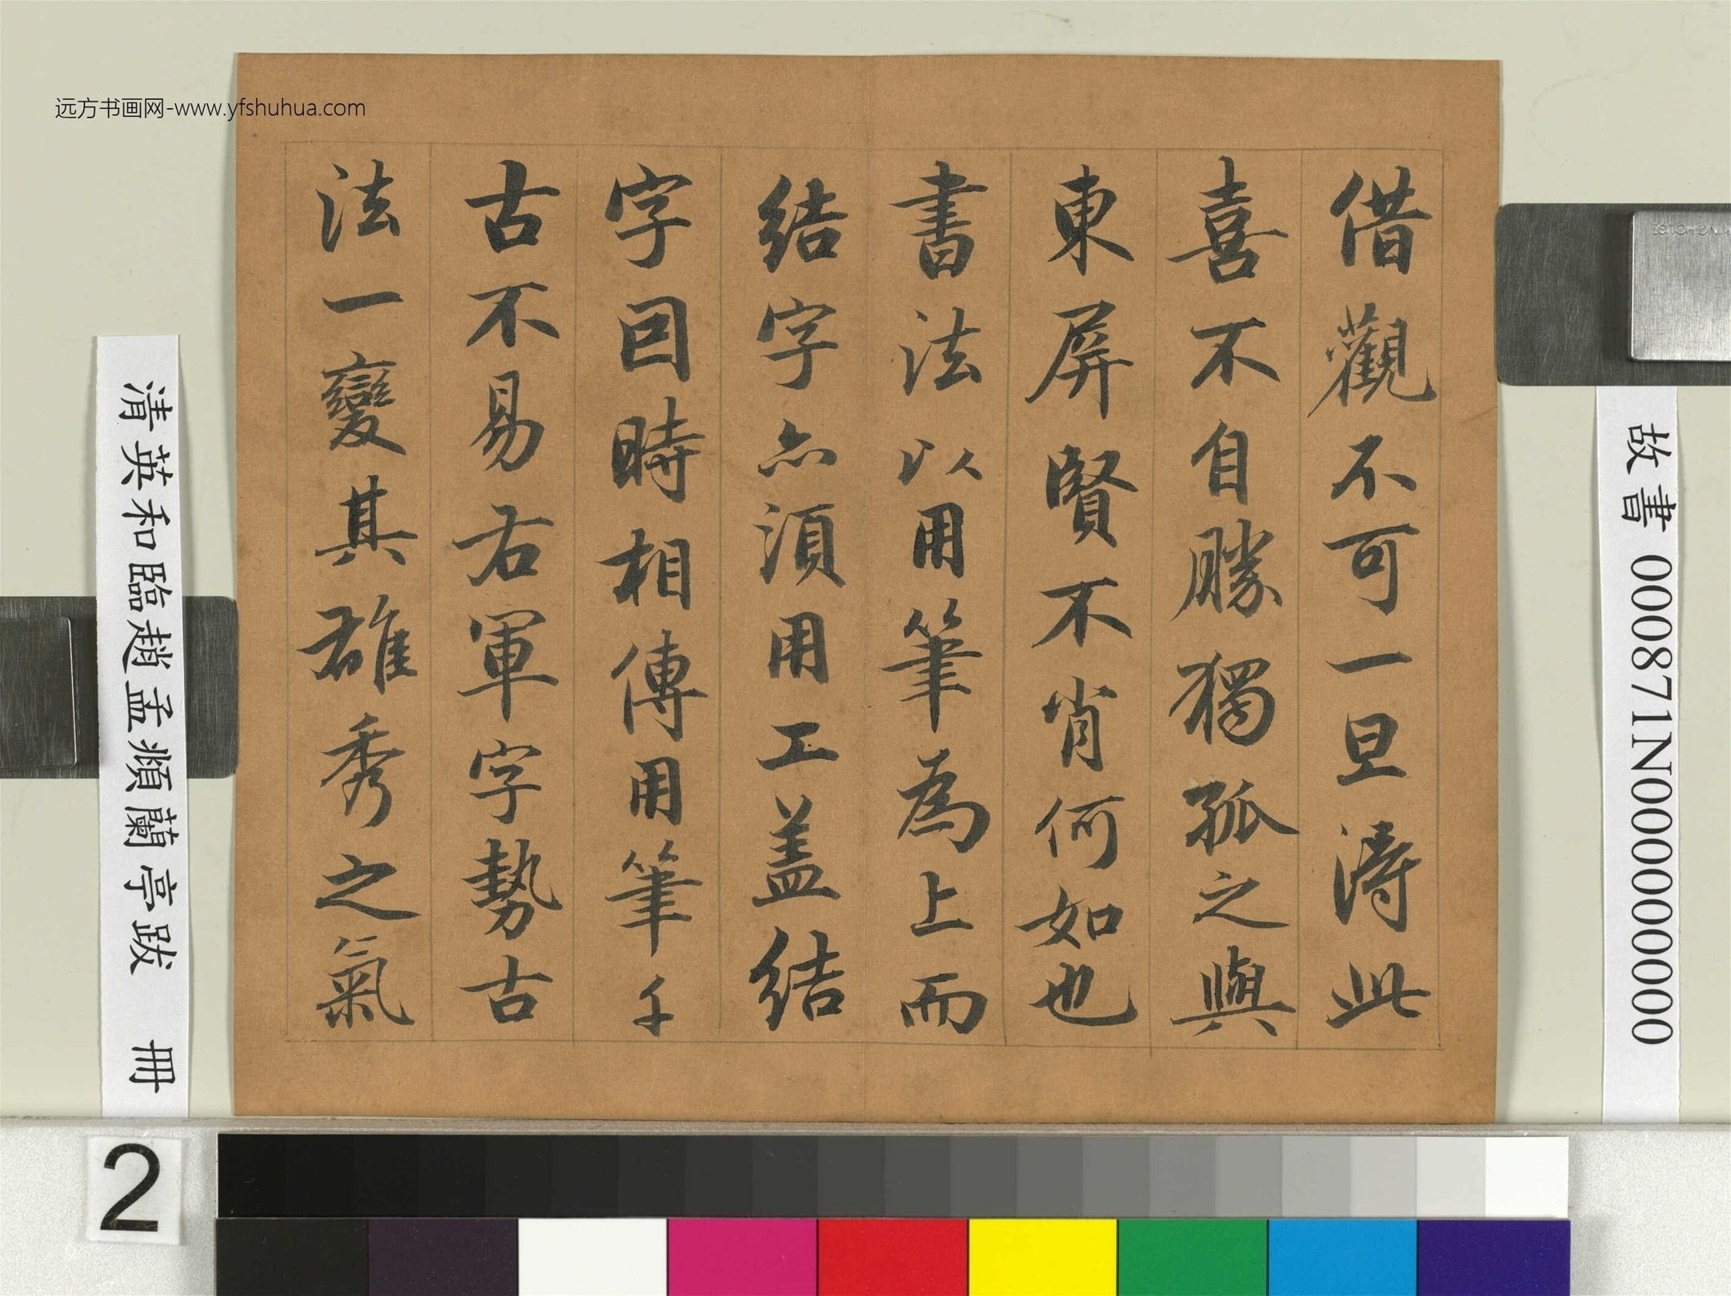 远方书画网-www.yfshuhua.com
借觀不可一旦得此
喜不自勝獨孤之與
東屏賢不肖何如也
書法以用筆為上而
結字亦須用工盖結
字因時相傳用筆千
古不易右軍字勢古
法一變其雄秀之氣
故書 000871N000000000
清英和臨趙孟頫蘭亭跋 冊
2